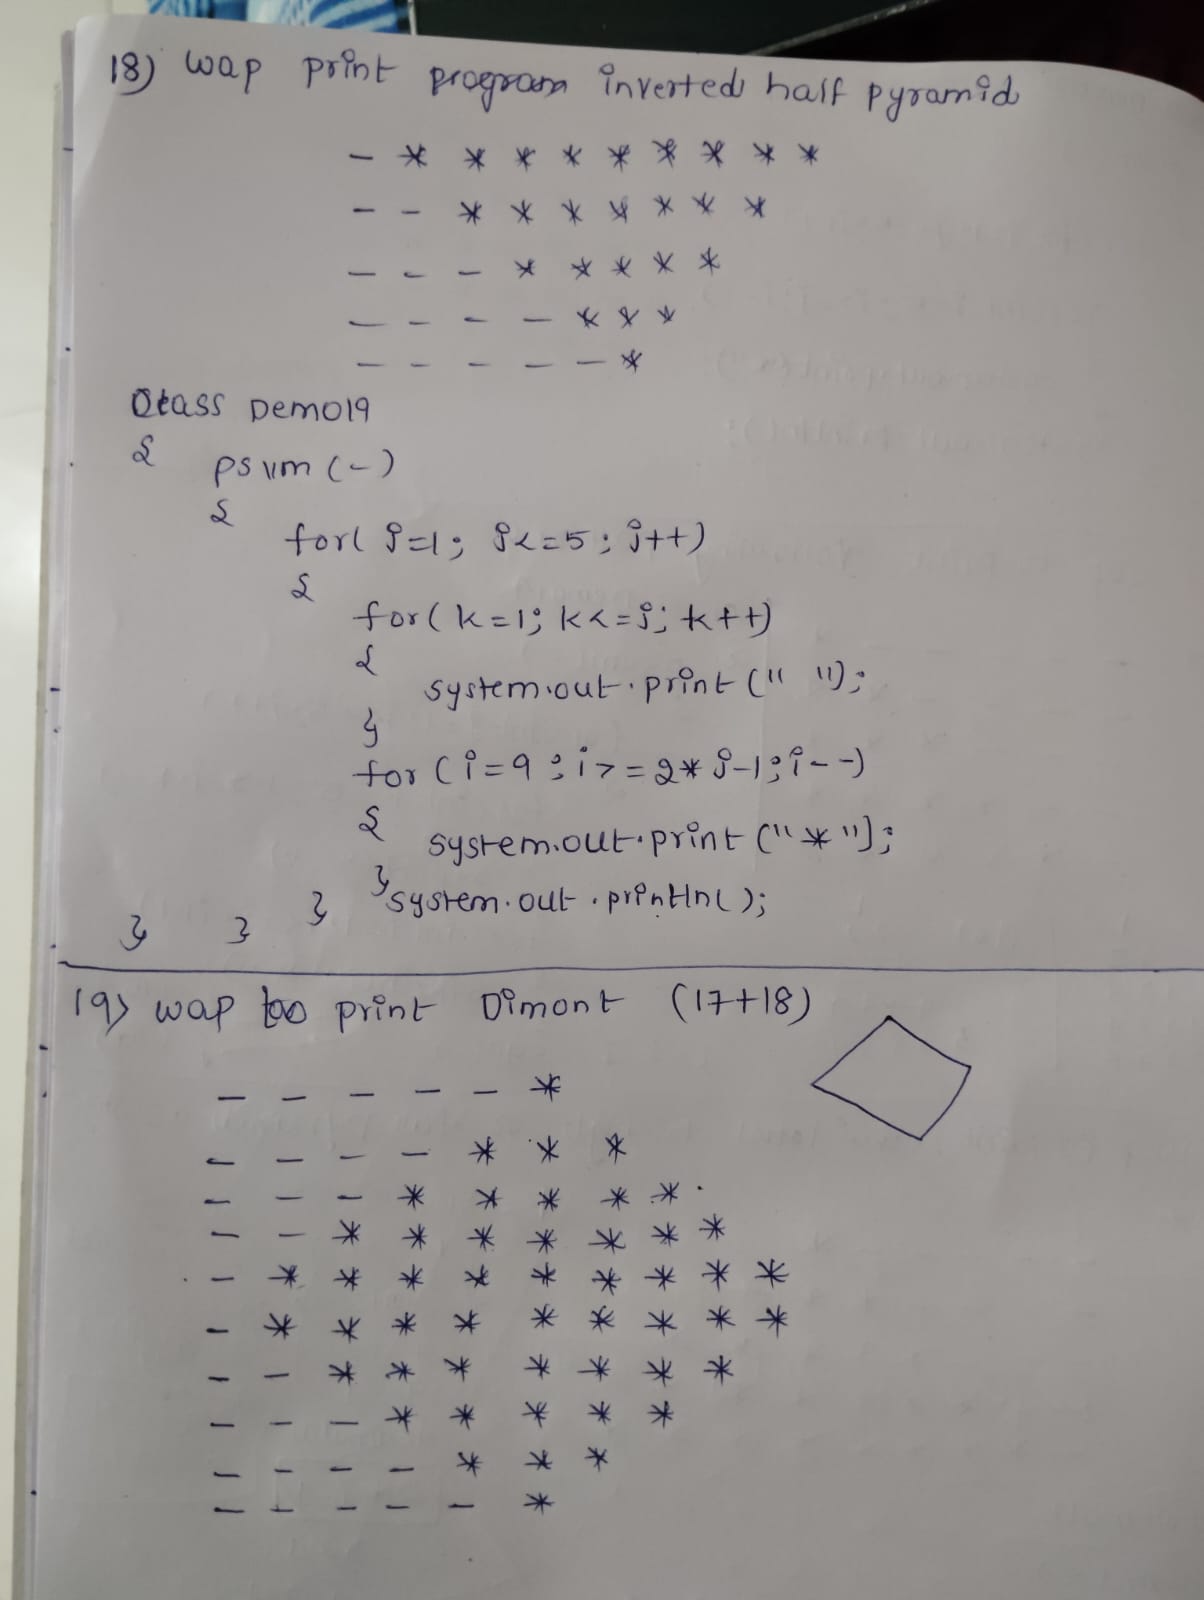 18) wap print program inverted half pyramid
- * * * * * * * * *
- - * * * * * * *
- - - * * * * *
- - - - * * *
- - - - - *
Class Demo19
{
psvm (-)
{
for( j=1; j<=5; j++)
{
for( k=1; k<=j; k++)
{
system.out.print (" ");
}
for (i=9; i>=2*j-1; i--)
{
system.out.print ("*");
}
system.out.println( );
} } }
19) wap too print Dimont (17+18)
- - - - - *
- - - - * * *
- - - * * * * *
- - * * * * * * *
- * * * * * * * * *
- * * * * * * * * *
- - * * * * * * *
- - - * * * * *
- - - - * * *
- - - - - *